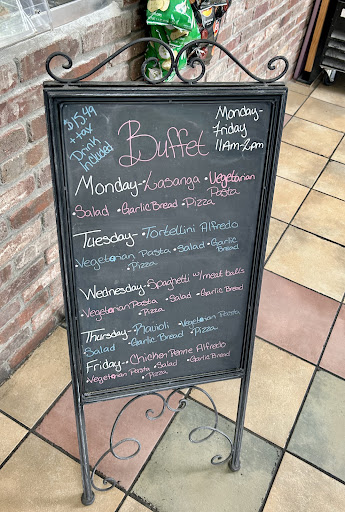 $15.49
+ tax
Drink
Included
Buffet
Monday-
Friday
11AM-2PM
Monday-Lasanga • Vegetarian
Pasta
• Salad • Garlic Bread • Pizza
Tuesday- • Tortellini Alfredo
Vegetarian Pasta • Salad • Garlic
Bread
• Pizza
Wednesday-Spaghetti w/meat balls
• Vegetarian Pasta • Salad • Garlic Bread
• Pizza
Thursday- Ravioli • Vegetarian Pasta
Salad • Garlic Bread • Pizza
Friday- • Chicken Penne Alfredo
• Vegetarian Pasta • Salad • Garlic Bread
• Pizza